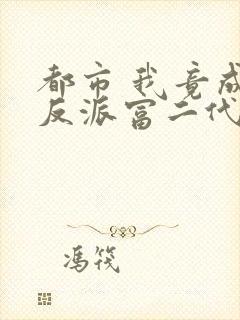 都市我竟成
反派富二代
冯筏